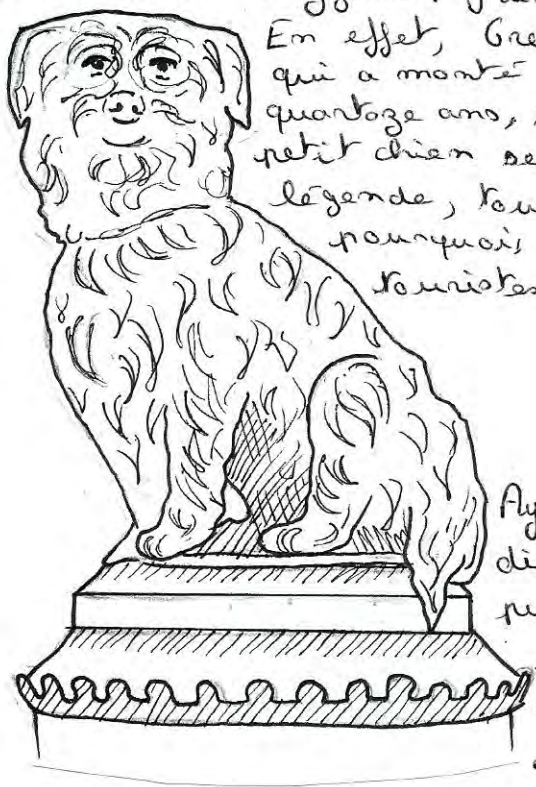 En effet, Gre
qui a monté
quatorze ans,
petit chien se
légende, tou
pourquoi,
touristes
Ay
di
pe